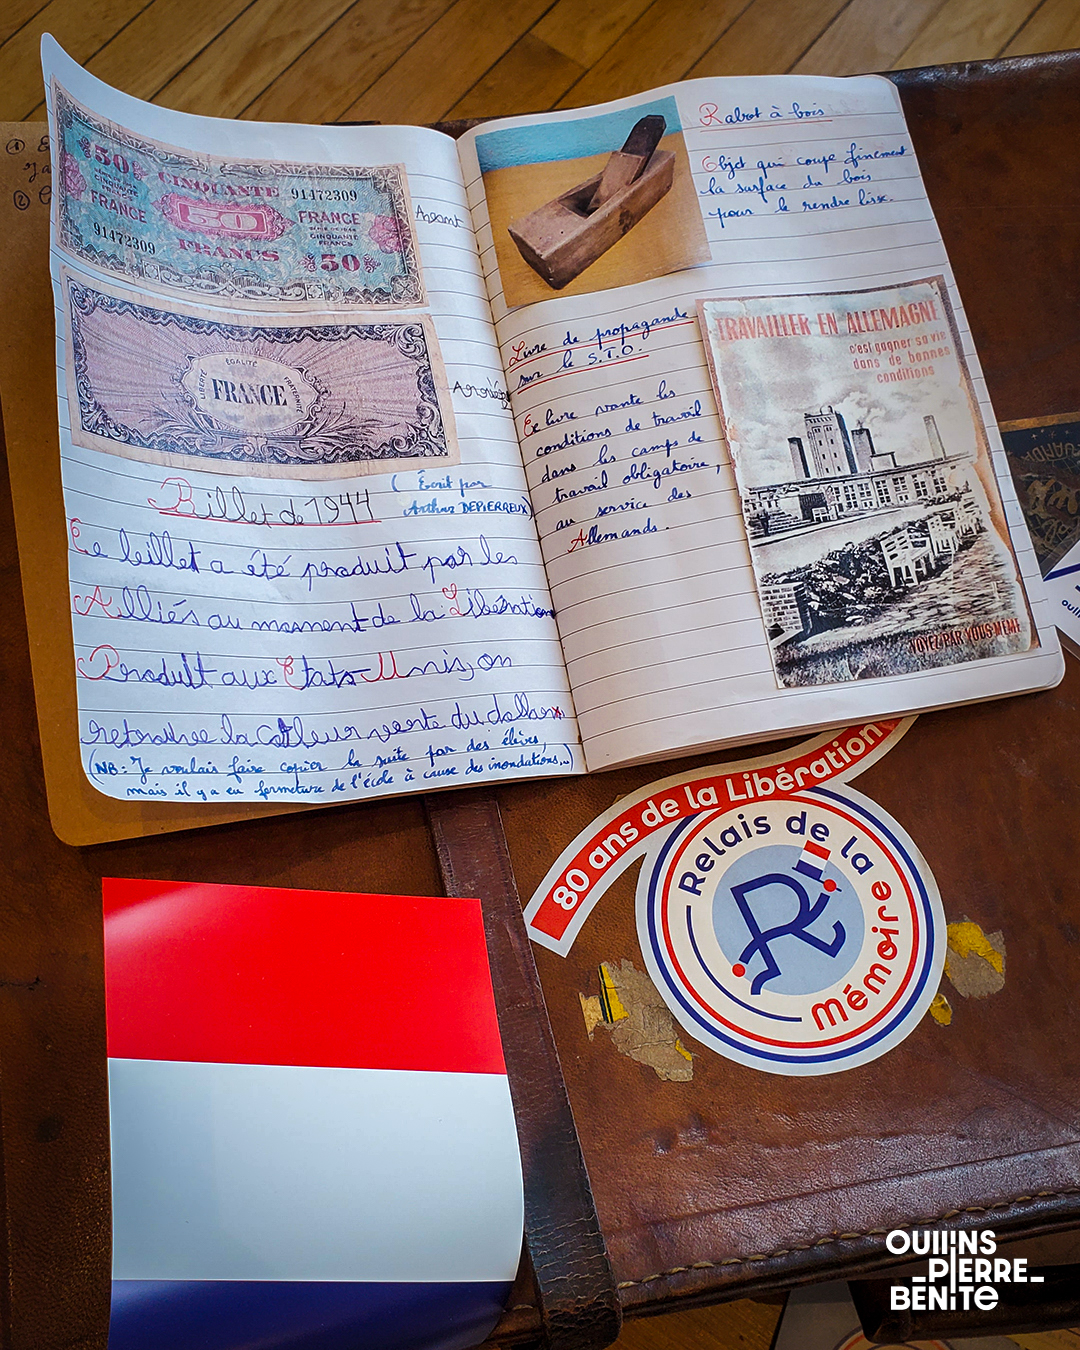 50
CINQUANTE
91472309
50
CINQUANTE
FRANCE
50
FRANCE
SÉRIE DE 1944
CINQUANTE
FRANCS
91472309
FRANCS
50
Avant
LIBERTÉ
ÉGALITÉ
FRATERNITÉ
FRANCE
Arrière
Billet de 1944
(Écrit par
Arthur DEPIERREUX)
Ce billet a été produit par les
Alliés au moment de la Libération
Produit aux États-Unis, on
retrouve la couleur verte du dollar
(NB: Je voulais faire copier la suite par des élèves,
mais il y a eu fermeture de l'école à cause des inondations...)
Rabot à bois
Objet qui coupe finement
la surface du bois
pour le rendre lisse.
Livre de propagande
sur le S.T.O.
Ce livre vante les
conditions de travail
dans les camps de
travail obligatoire,
au service des
Allemands.
TRAVAILLER EN ALLEMAGNE
c'est gagner sa vie
dans de bonnes
conditions
VOYEZ PAR VOUS-MÊME
80 ans de la Libération
Relais de la
Mémoire
OULLINS
PIERRE
BENITE